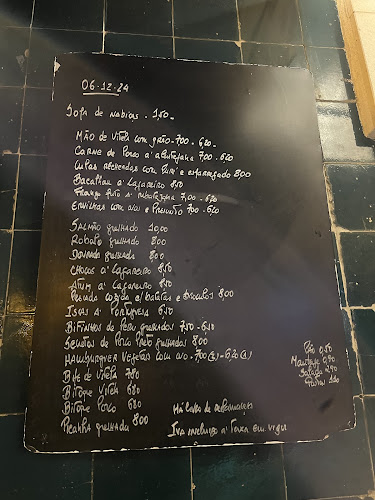 06.12.24
Sopa de nabiças - 150-
Mão de Vitela com grão - 700 - 620
Carne de Porco á alentejana 700 - 620
Lulas recheadas com puré e esparregado 800
Bacalhau á Lagareiro 850
Frango frito á 700 - 620
Ervilhas com ovo e Presunto 700 - 620
Salmão grelhado 1000
Robalo grelhado 800
Dourada grelhada 800
Chocos á Lagareiro 850
Atum á Lagareiro 850
Pescada cozida c/batatas e brócolos 800
Iscas á Portuguesa 650
Bifinhos de Peru grelhados 750 - 650
Secretos de Porco Preto grelhados 800
Hamburguer Vegetais com ovo - 700(2) - 620(1)
Bife de Vitela 780
Bitoque Vitela 680
Bitoque Porco 680
Picanha grelhada 800
Pão 0.50
Manteiga 0.90
Salada 2.90
1.20
Há Caixa de
Iva incluido á Taxa em vigor